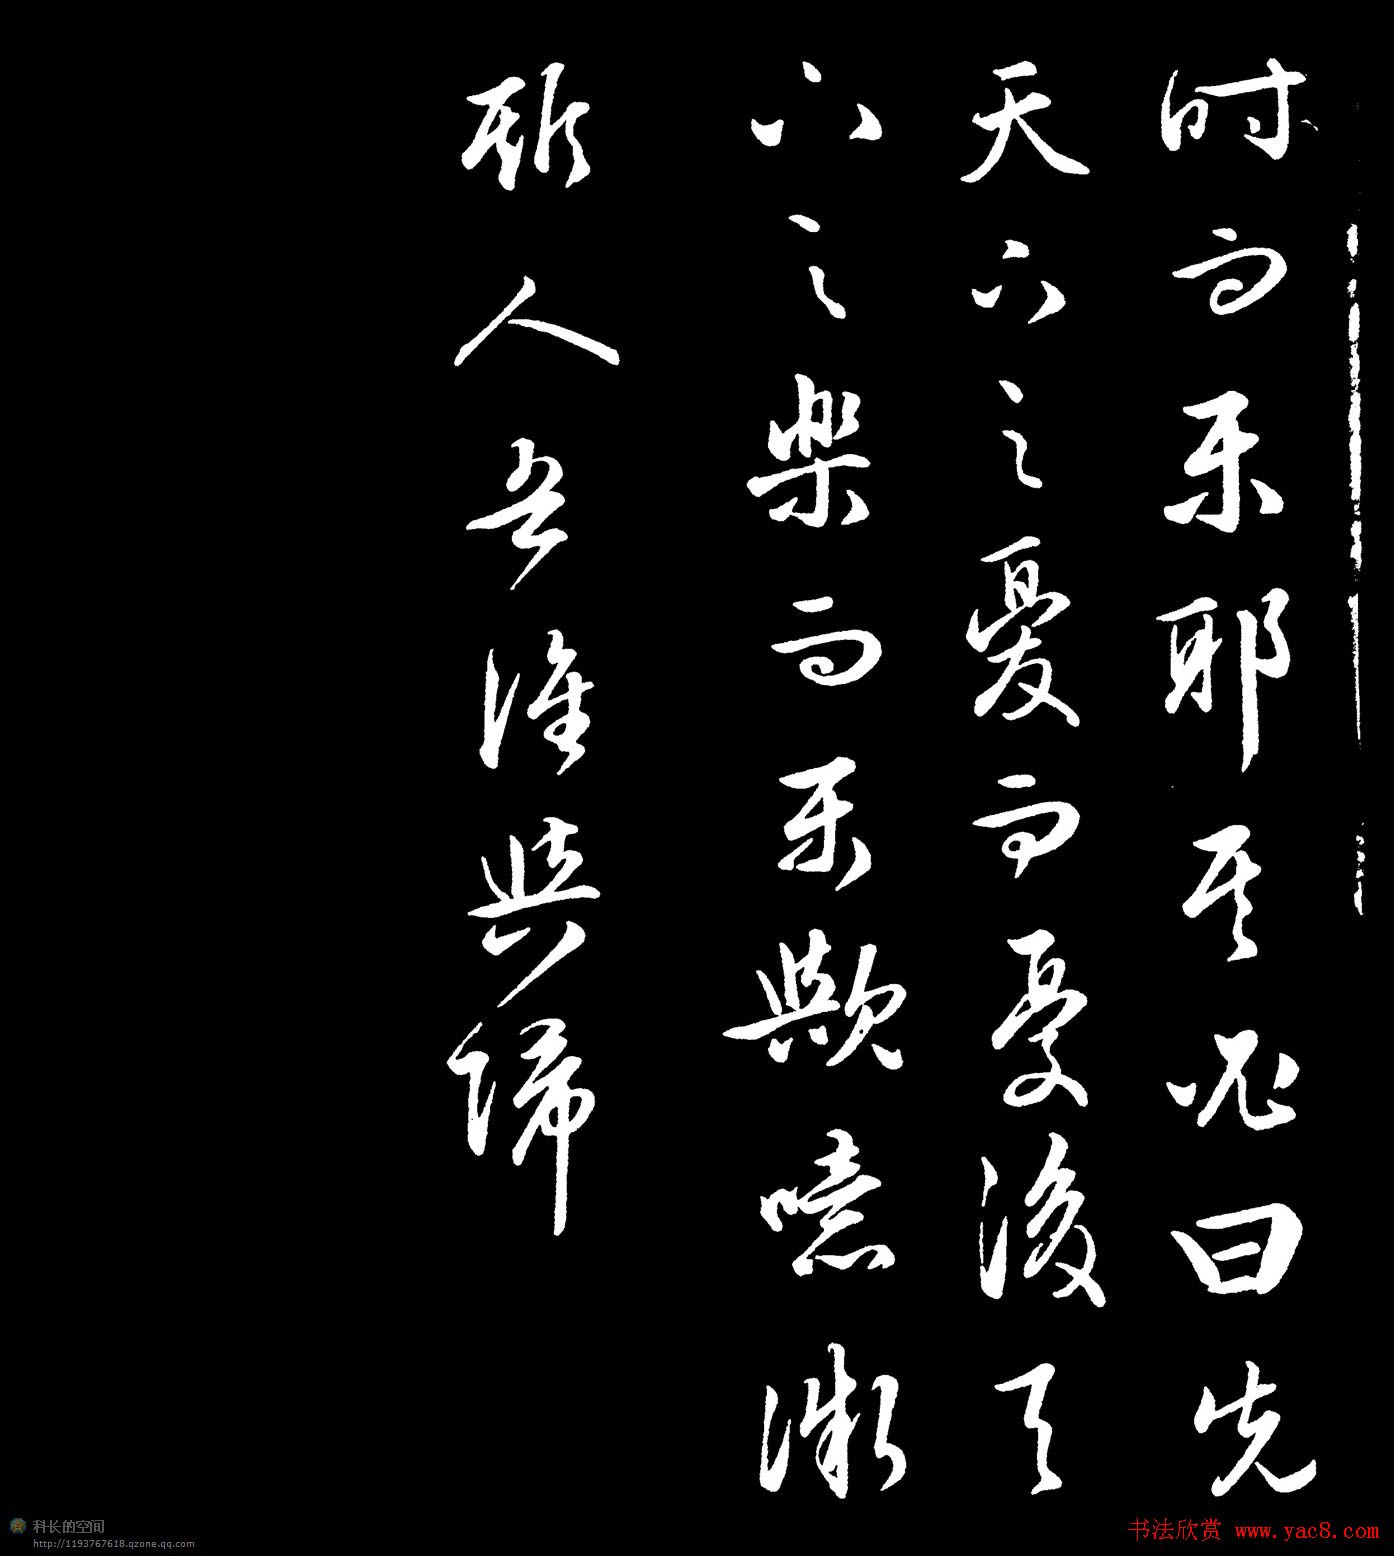 时而樂耶其必曰先
天下之憂而憂後天
下之樂而樂歟噫微
斯人吾誰與歸
科长的空间
http://1193767618.qzone.qq.com
书法欣赏 www.yac8.com